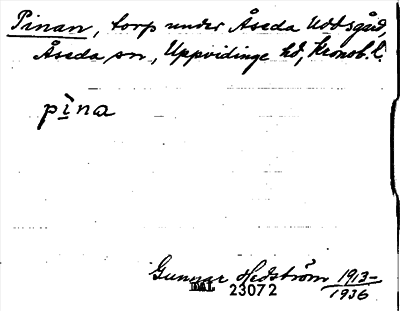 Pinan, torp under Åseda Uddsgård,
Åseda sn, Uppvidinge hd, Kronob. l.
pìna
Gunnar Hedström 1913–
1936
DAL 23072